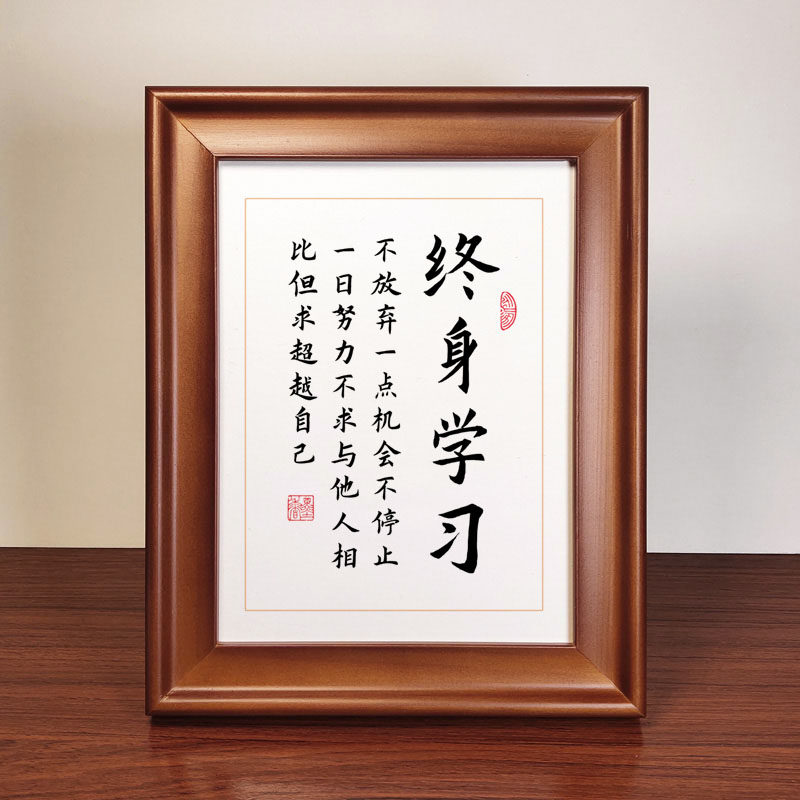 终身学习
不放弃一点机会不停止
一日努力不求与他人相
比但求超越自己